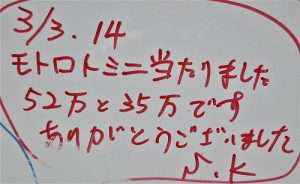 3/3.14
モトロトミニ当たりました
52万と35万です
ありがとうございました
N.K